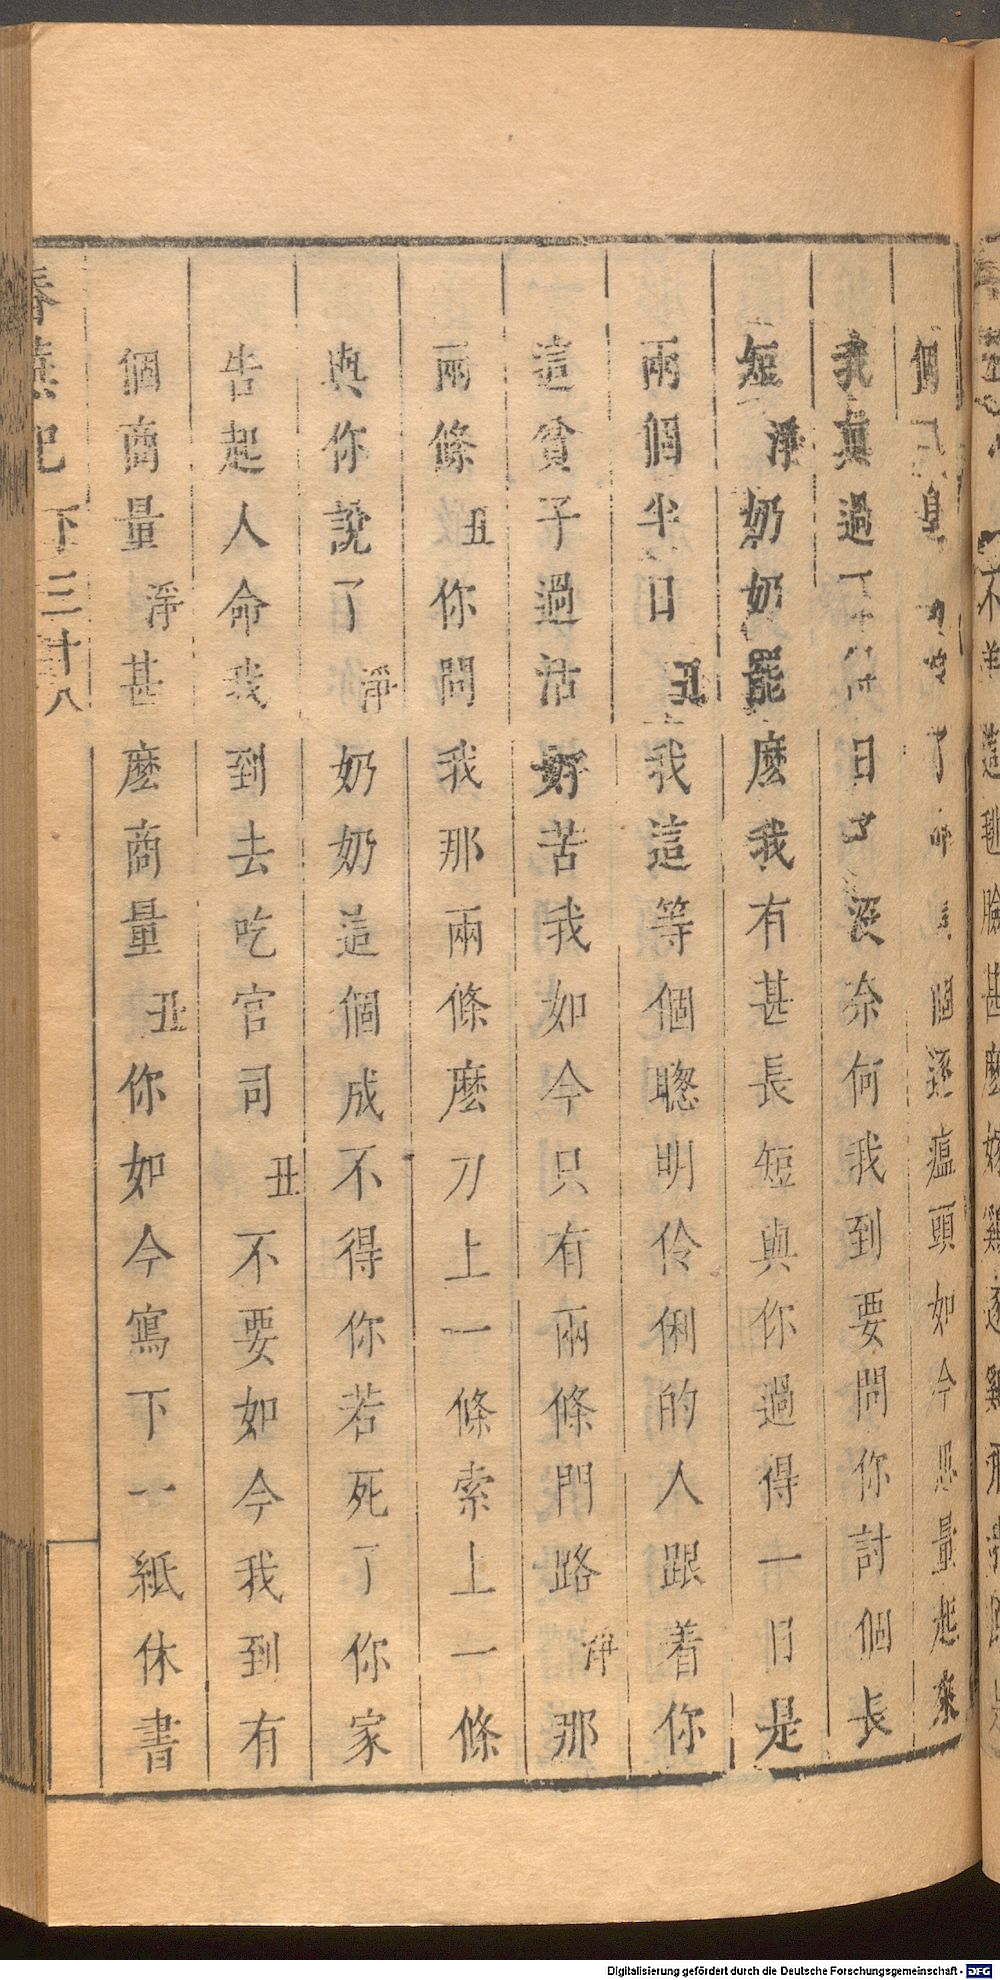 個 息 了 個逐瘟頭如今思量起來
我真過 日了沒奈何我到要問你討個長
短淨奶奶罷麼我有甚長短與你過得一日是
兩個半日丑我這等個聰明伶俐的人跟着你
這貧子過活好苦我如今只有兩條門路淨那
兩條丑你問我那兩條麼刀上一條索上一條
與你說了淨奶奶這個成不得你若死了你家
告起人命我到去吃官司丑不要如今我到有
個商量淨甚麼商量丑你如今寫下一紙休書
春蕪記 下 三十八
Digitalisierung gefördert durch die Deutsche Forschungsgemeinschaft - DFG